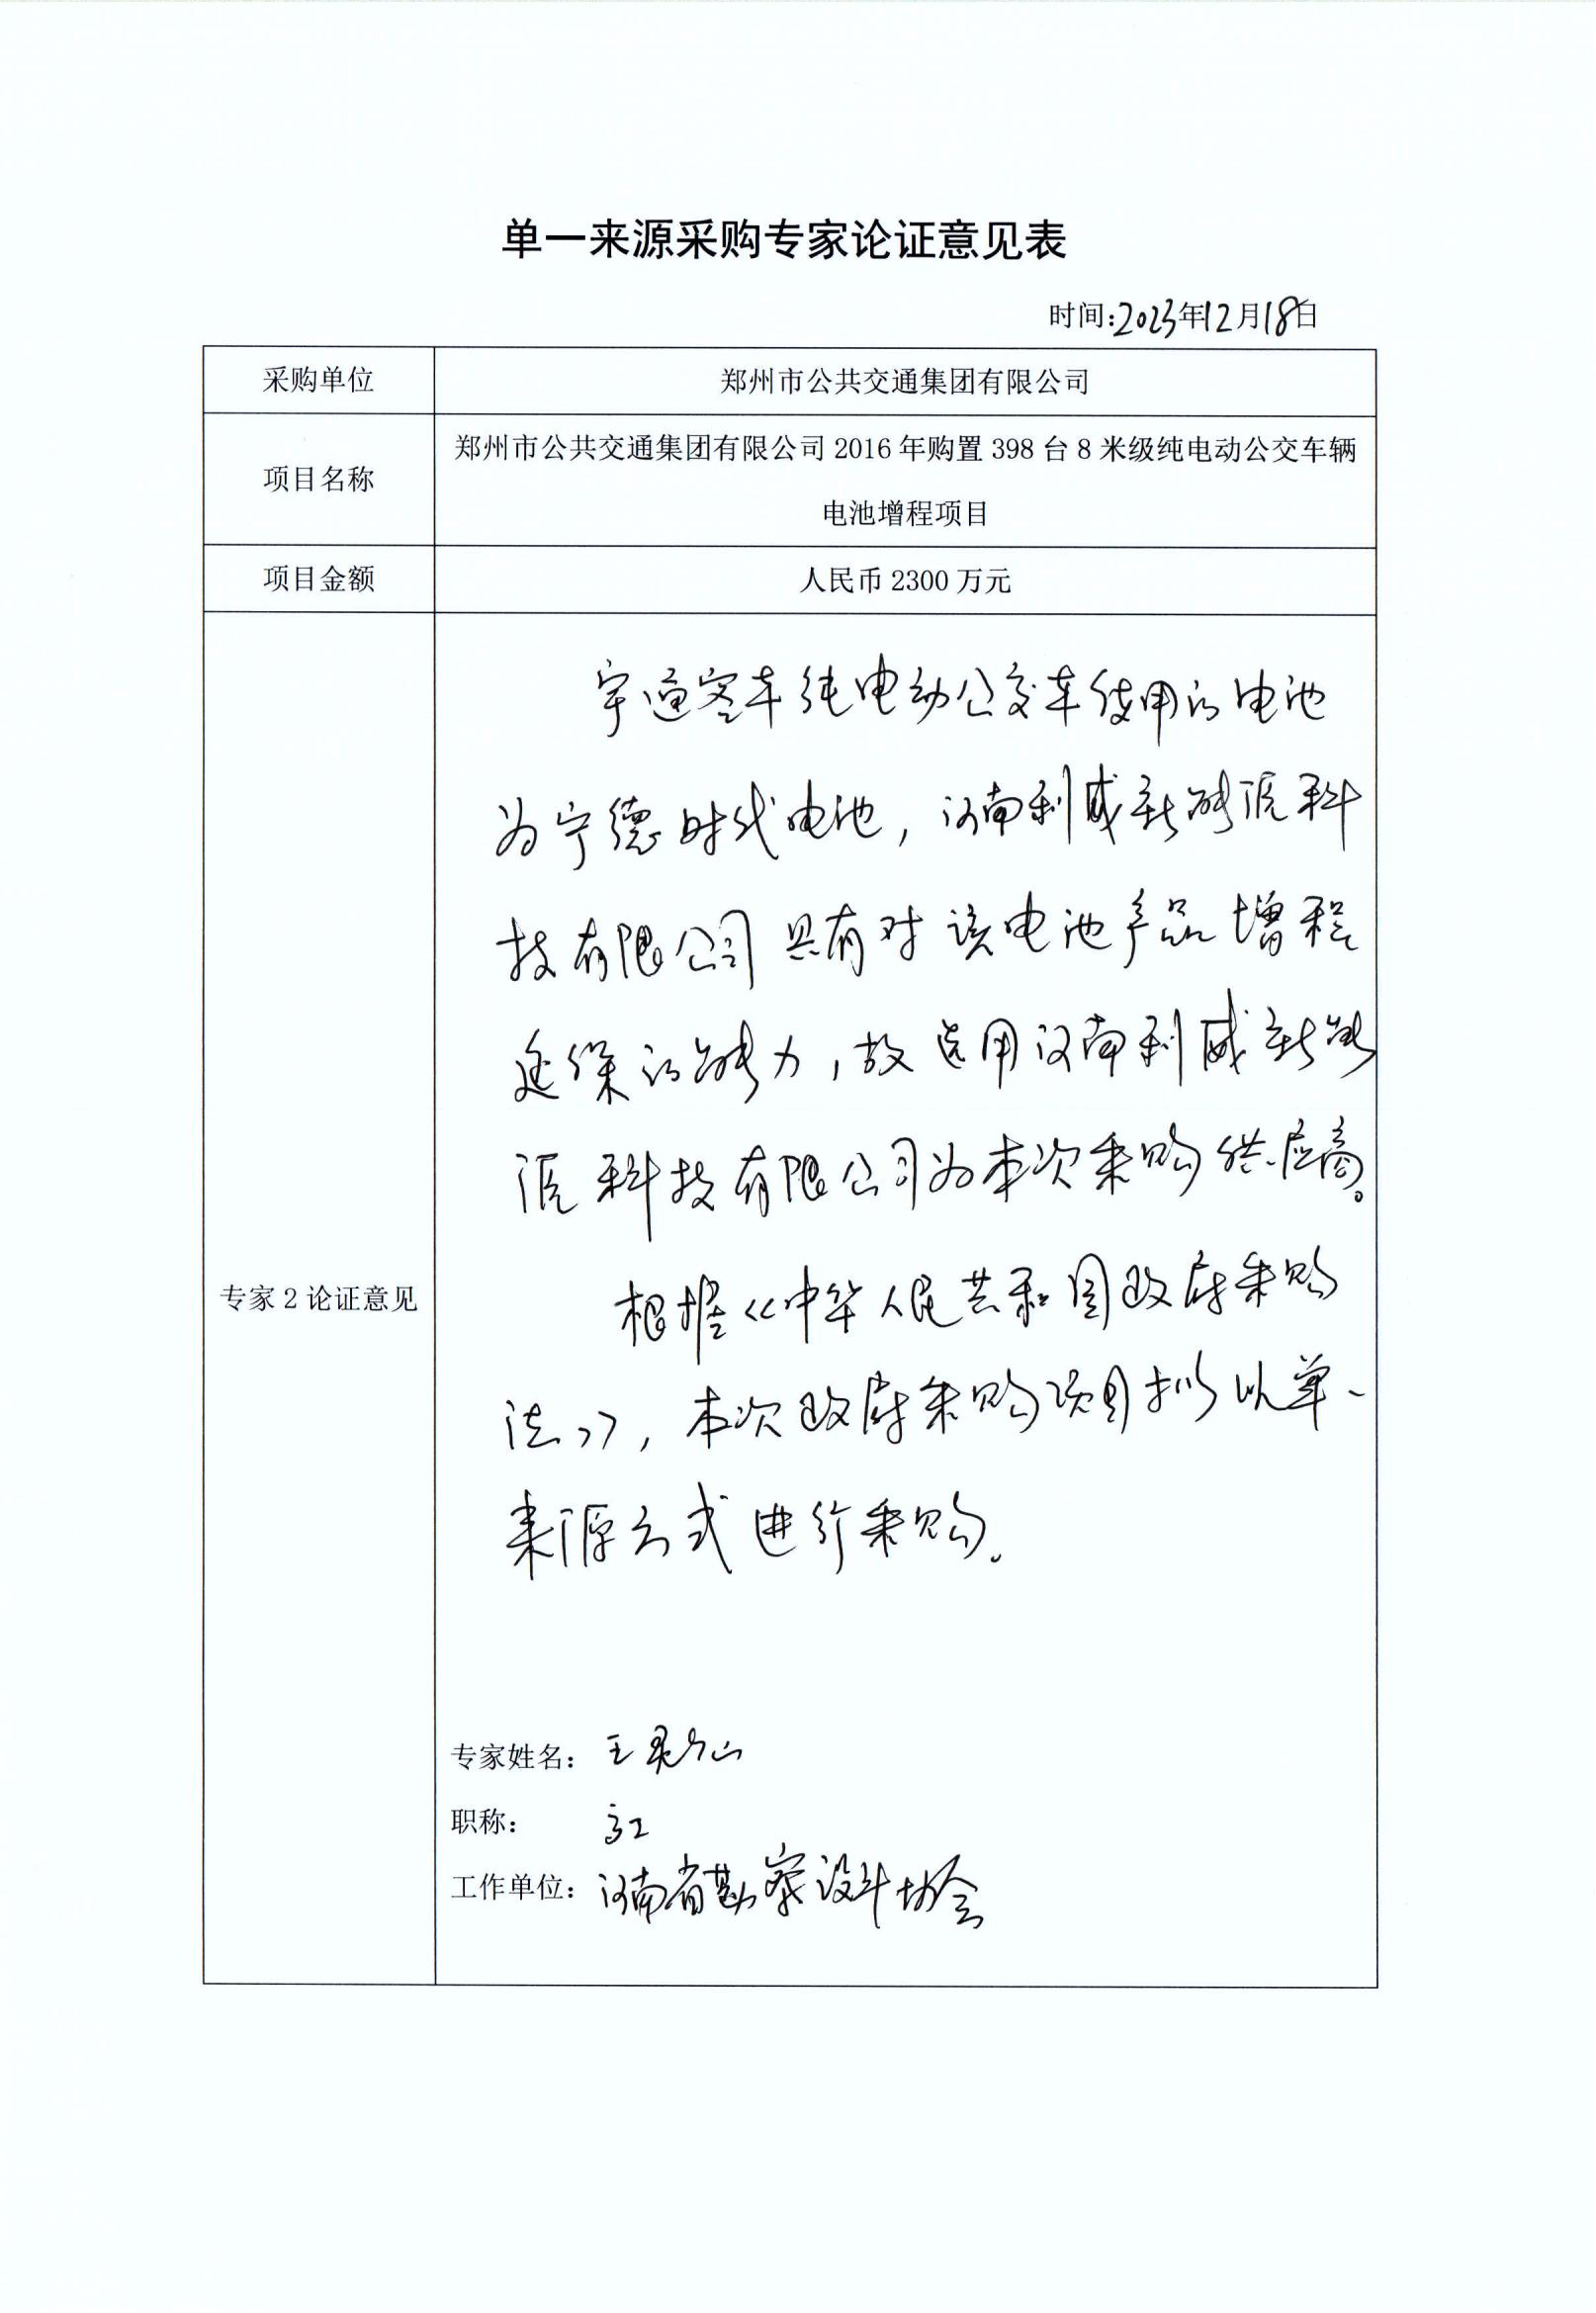 单一来源采购专家论证意见表
时间:2023年12月18日
采购单位
郑州市公共交通集团有限公司
项目名称
郑州市公共交通集团有限公司 2016 年购置 398 台 8 米级纯电动公交车辆
电池增程项目
项目金额
人民币 2300 万元
专家 2 论证意见
宇通客车纯电动公交车使用的电池
为宁德时代电池，河南利威新能源科
技有限公司具有对该电池产品增程
延保的能力，故选用河南利威新能
源科技有限公司为本次采购供应商。
根据《中华人民共和国政府采购
法》，本次政府采购项目拟以单一
来源方式进行采购。
专家姓名： 王 山
职称： 高工
工作单位：河南省勘察设计协会